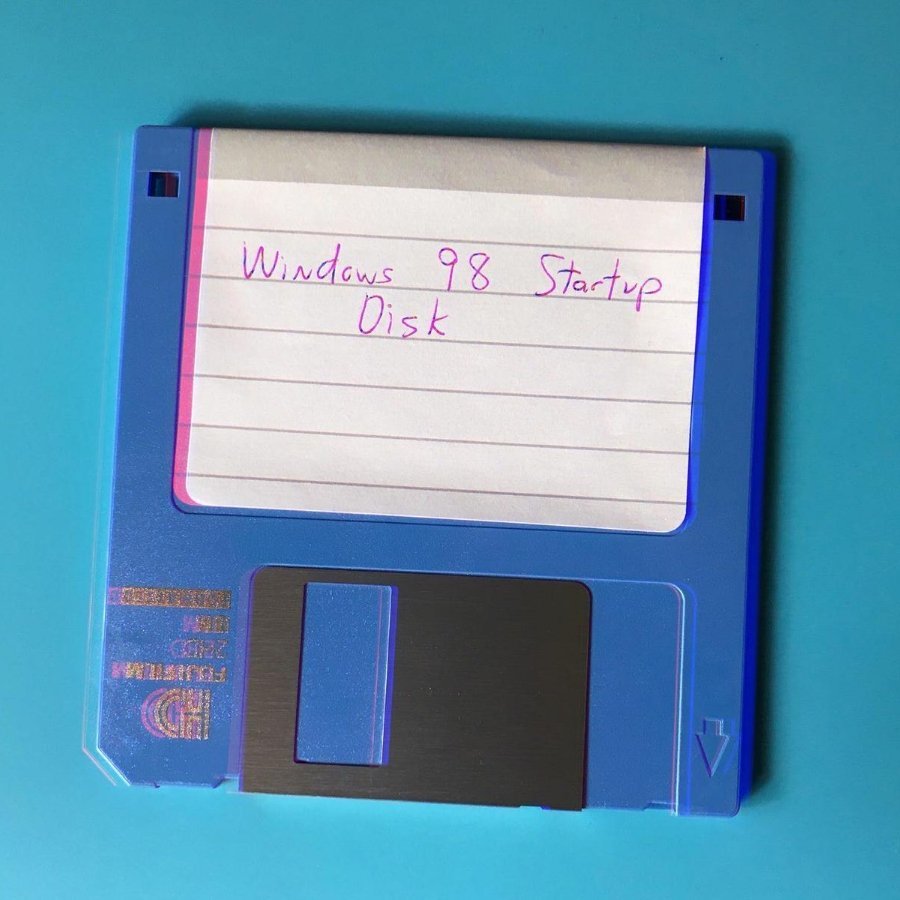 Windows 98 Startup
Disk
FUJIFILM
2HD
IBM